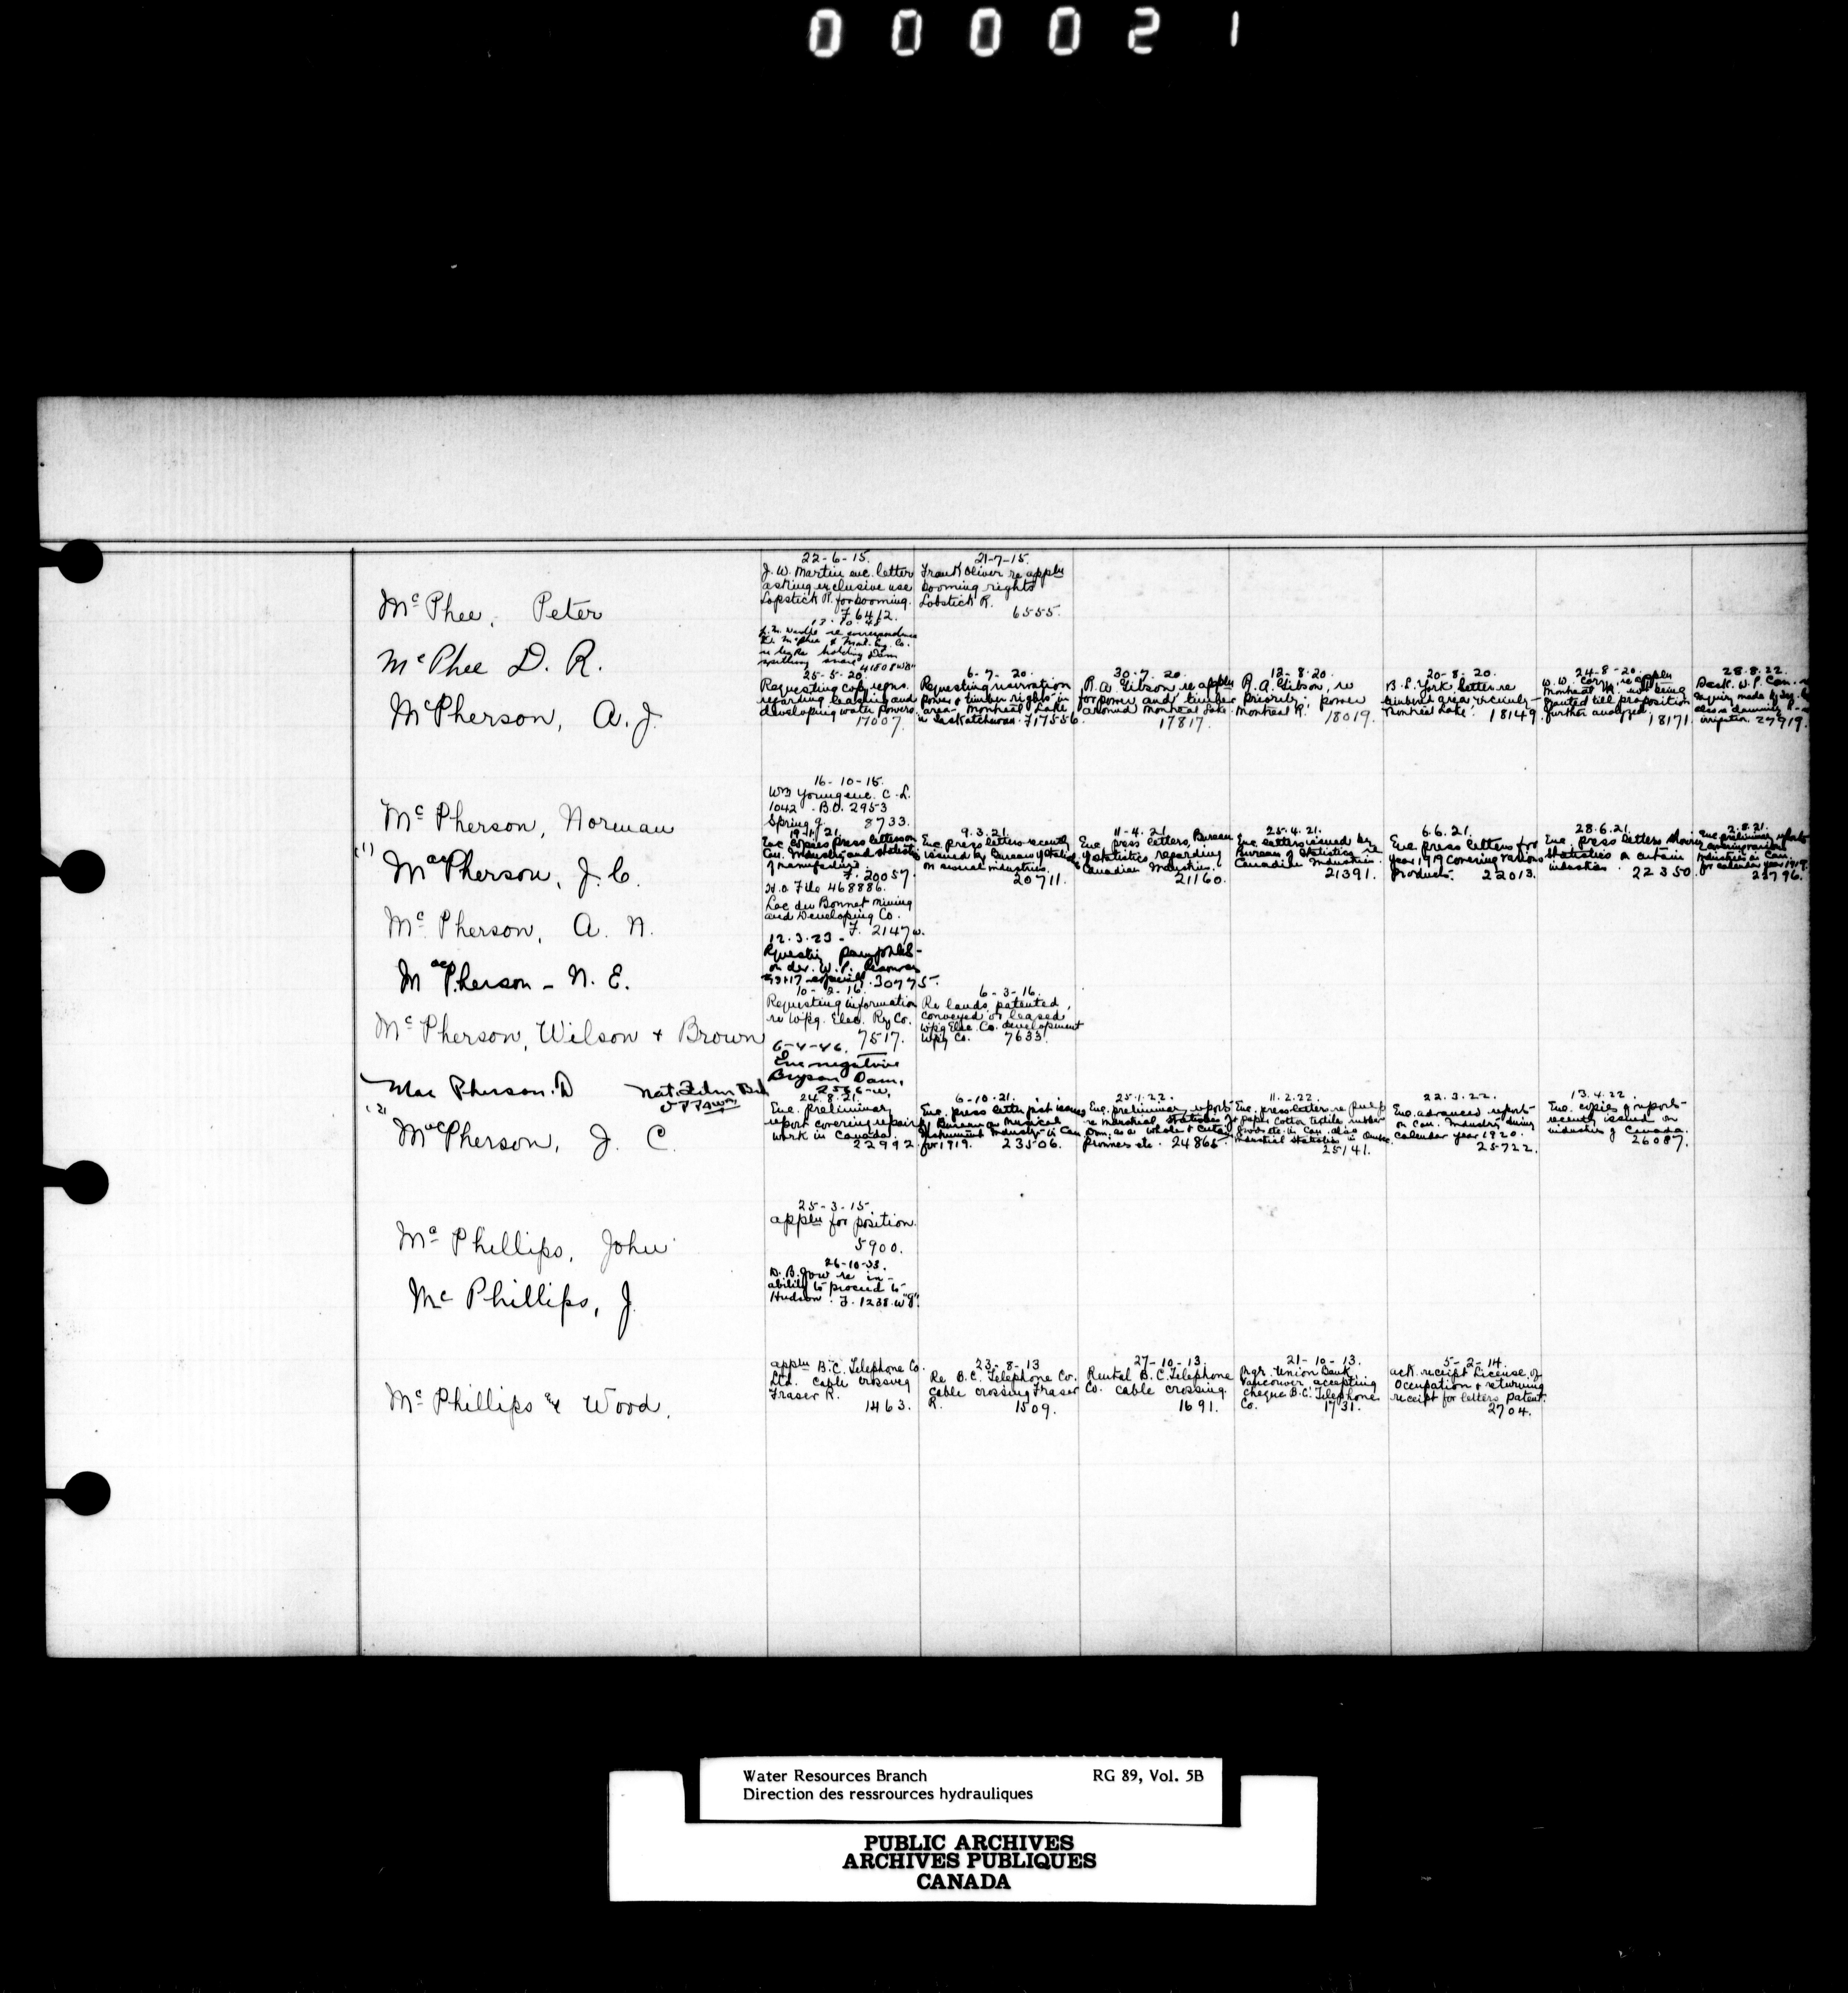 000021
22-6-15.
J. W. Martin enc. letter
asking exclusive use
Lopstick R. for booming.
F 6412.
21-7-15.
Frank Oliver re appln
booming rights
Lobstick R.
6555.
McPhee, Peter
re correspondence
holding Dam
41808
McPhee D. R.
25-5-20.
Requesting copy regns.
regarding leasing and
developing water powers.
17007.
6-7-20.
Requesting reservation
power & timber rights in
area - Montreal Lake
in Saskatchewan. F 17556.
30.7.20.
R. A. Gibson, re appln
for power and timber
around Montreal Lake.
17817.
12-8-20.
R. A. Gibson, re
Priority; power
Montreal R. 18019.
20-8-20.
B. L. York letter re
timbered area vicinity
Montreal Lake. 18149.
24-8-20.
W. W. Cory, re appln
Montreal R. not being
granted till proposition
further analyzed.
18171.
28.8.22.
irrigation. 27919.
McPherson, A. J.
16-10-15.
Wm Young enc. C. L.
1042 - B.C. 2953
Spring
8733.
McPherson, Norman
19-1-21.
Enc copies press letters on
Can. Industry and statistics
of manufacturing
F. 20057.
9.3.21.
Enc press letters recently
issued by Bureau of Statistics
on several industries.
20711.
11-4.21.
Enc. press letters, Bureau
of Statistics regarding
Canadian Industries.
21160.
25.4.21.
Enc letters issued by
Bureau of Statistics re
Canadian Industries.
21391.
6.6.21.
Enc. press letters for
year 1919 covering various
products. 22013.
28.6.21.
Enc. press letters showing
statistics on certain
industries. 22350.
2.8.21.
Enc preliminary reports
on various
industries in Can.
for calendar year 1919.
22796.
(1) MacPherson, J. C.
H.O File 468886.
Lac du Bonnet Mining
and Developing Co.
F. 2147w.
McPherson, A. N.
12.3.23.
Requesting pamphlets
on dev. W. P. Resources
30775.
MacPherson - N. E.
10-2-16.
Requesting information
re Wpg. Elec. Ry Co.
7517.
6-3-16.
Re lands patented,
conveyed or leased
Wpg Elec. Co. development
Wpg Co. 7633.
McPherson, Wilson & Brown
6-4-46.
Enc negative
Bryson Dam.
MacPherson. D Nat. Film Bd
OTTAWA
24.8.21.
Enc. preliminary
report covering repair
work in Canada.
22992.
6-10-21.
Enc. press letter just issued
by Bureau on Musical
Instrument Industry in Can
for 1919. 23506.
25.1.22.
Enc. preliminary report
re Industrial Statistics of
Dom. as a whole & cities
provinces etc. 24866.
11.2.22.
Enc. press letters re pulp &
paper cotton textile rubber
goods etc. in Can. also
Industrial statistics in Quebec.
25141.
22.3.22.
Enc. advanced report
on Can. Industry during
calendar year 1920.
25722.
13.4.22.
Enc. copies of reports
recently issued on
industries of Canada.
26087.
(2) MacPherson, J. C.
25-3-15.
appln for position.
5900.
McPhillips, John
26-10-33.
D. B. Gow re in-
ability to proceed to
Hudson. F. 1238-w"8".
McPhillips, J.
appln B.C. Telephone Co.
Ltd. cable crossing
Fraser R.
1463.
23-8-13
Re B.C. Telephone Co.
cable crossing Fraser
R. 1509.
27-10-13.
Rental B.C. Telephone
Co. cable crossing.
1691.
21-10-13.
Mgr. Union Bank
Vancouver accepting
cheque B.C. Telephone
Co. 1731.
5-2-14.
ack. receipt License of
Occupation & returning
receipt for letters patent.
2704.
McPhillips & Wood.
Water Resources Branch RG 89, Vol. 5B
Direction des ressrources hydrauliques
PUBLIC ARCHIVES
ARCHIVES PUBLIQUES
CANADA